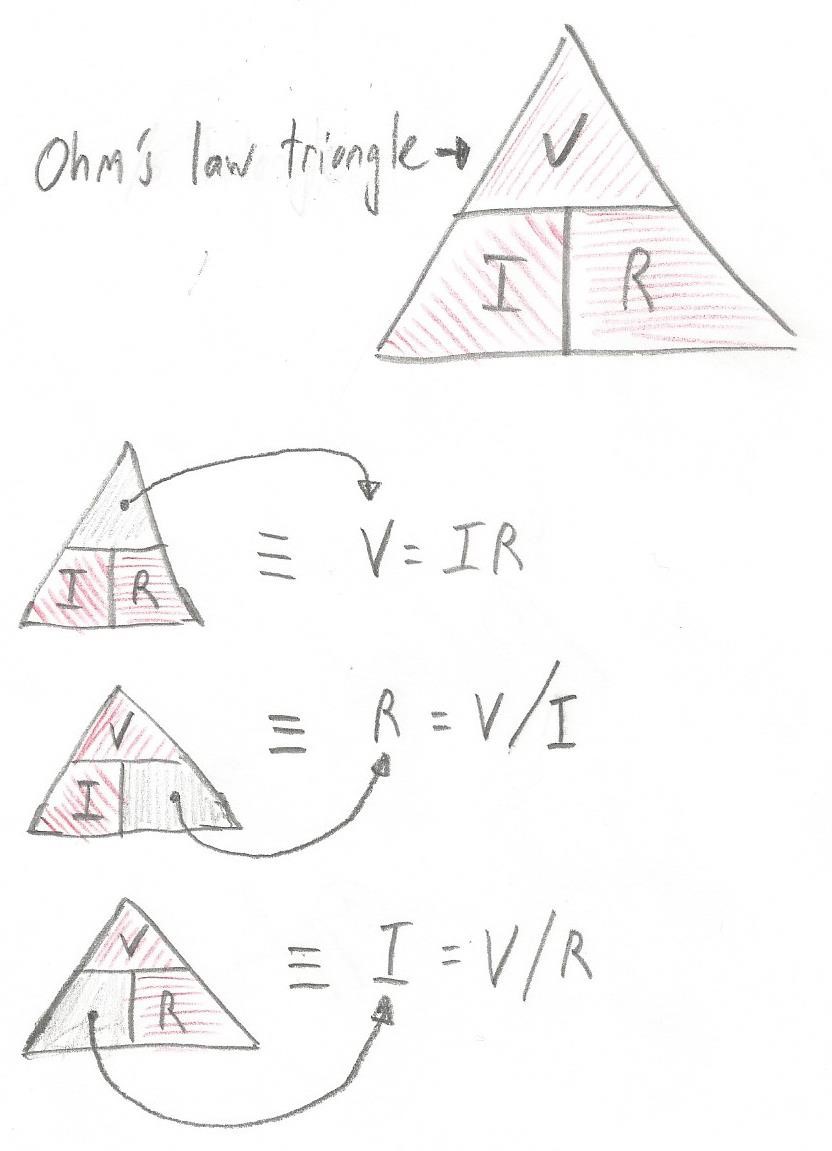 V
Ohm's law triangle →
I R
I R ≡ V = IR
V
I ≡ R = V/I
V
R ≡ I = V/R